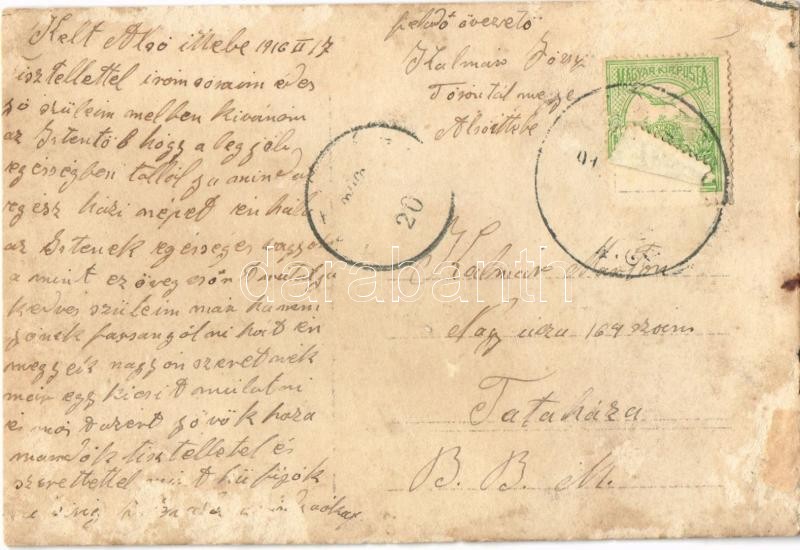 Kelt Alsó ittebe 1916 II 17
tisztellettel irom soraim edes
jó szüleim melben kivánom
az Istentöl hogy a legjob
egésségben tallálja mind az
egész házi népet én hála
az Istenek egésséges vagyok
a mint ez öveg esőn mutatja
kedves szüleim már ha nem
jönek farsangolni hát én
megyek nagyon szeretnék
már egy kicsit mulatni
és most azert jövök haza
maradok tisztelletel és
szerettettel mint hü fijok
feladó övezető
Kalmár Józsi
Torontál megye
Alsóittebe
MAGYAR KIR. POSTA
20
Kalmár Márton
Nagy ucza 164 szám
Tataháza
B. B. M.
darabanth